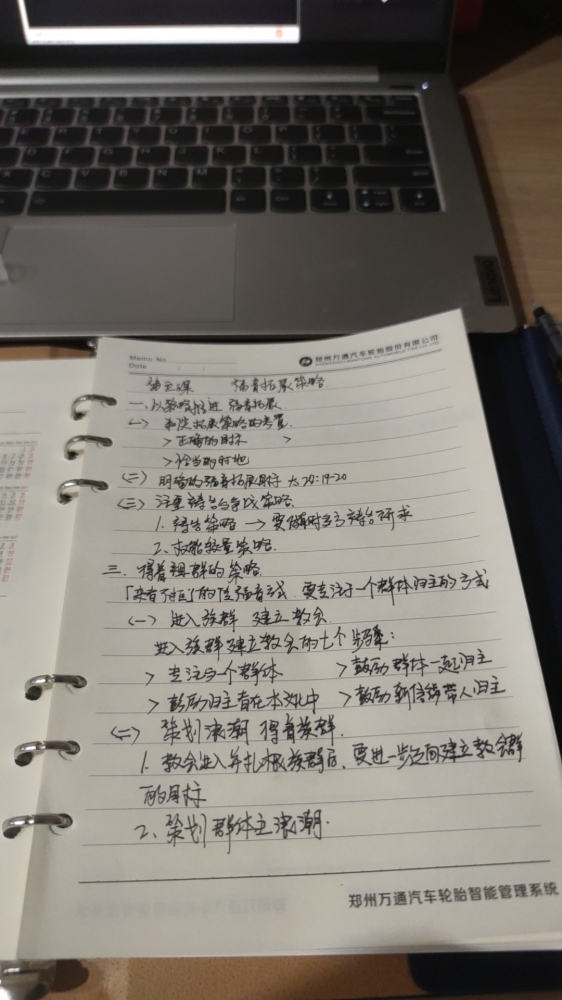 Memo No.
Date / /
郑州万通汽车轮胎股份有限公司
第五课 福音拓展策略
一、以策略推进福音拓展
(一) 制定拓展策略的考量
> 正确的目标 >
> 恰当的时地
(二) 明确的福音拓展目标 太28:19-20
(三) 注重祷告与争战策略
1. 祷告策略 → 要随时多方祷告祈求
2. 权能较量策略
三、得着群的策略
「来者不拒」的传福音方式、要专注于一个群体归主的方式
(一) 进入族群 建立教会
进入族群建立教会的七个步骤:
> 专注与一个群体 > 鼓励群体一起归主
> 鼓励归主者在本文化中 > 鼓励新信徒带人归主
(二) 策划浪潮 得着族群
1. 教会进入并扎根族群后、要进一步迈向建立教会群
的目标
2、策划群体归主浪潮.
郑州万通汽车轮胎智能管理系统
Lenovo